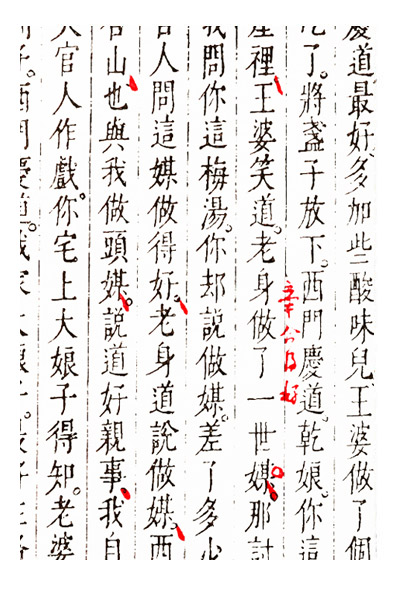 慶道。最好多加些酸味兒。王婆做了個
吃了。將盞子放下。西門慶道。乾娘。你這
屋裡。王婆笑道。老身做了一世媒。那討
我問你這梅湯。你却說做媒。差了多少
官人問這媒做得好。老身道說做媒。西
合山。也與我做頭媒。說道好親事。我自
大官人作戲。你宅上大娘子得知。老婆
子。西門慶道。我家大娘子。最好